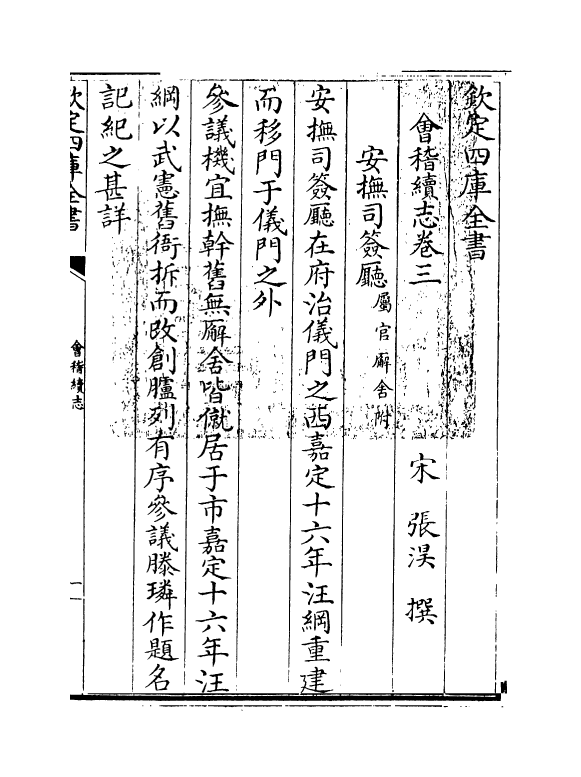 欽定四庫全書
會稽續志卷三
宋 張淏 撰
安撫司簽廳屬官廨舍附
安撫司簽廳在府治儀門之西嘉定十六年汪綱重建
而移門于儀門之外
參議機宜撫幹舊無廨舍皆僦居于市嘉定十六年汪
綱以武憲舊衙拆而改創臚列有序參議滕璘作題名
記紀之甚詳
欽定四庫全書
會稽續志
一